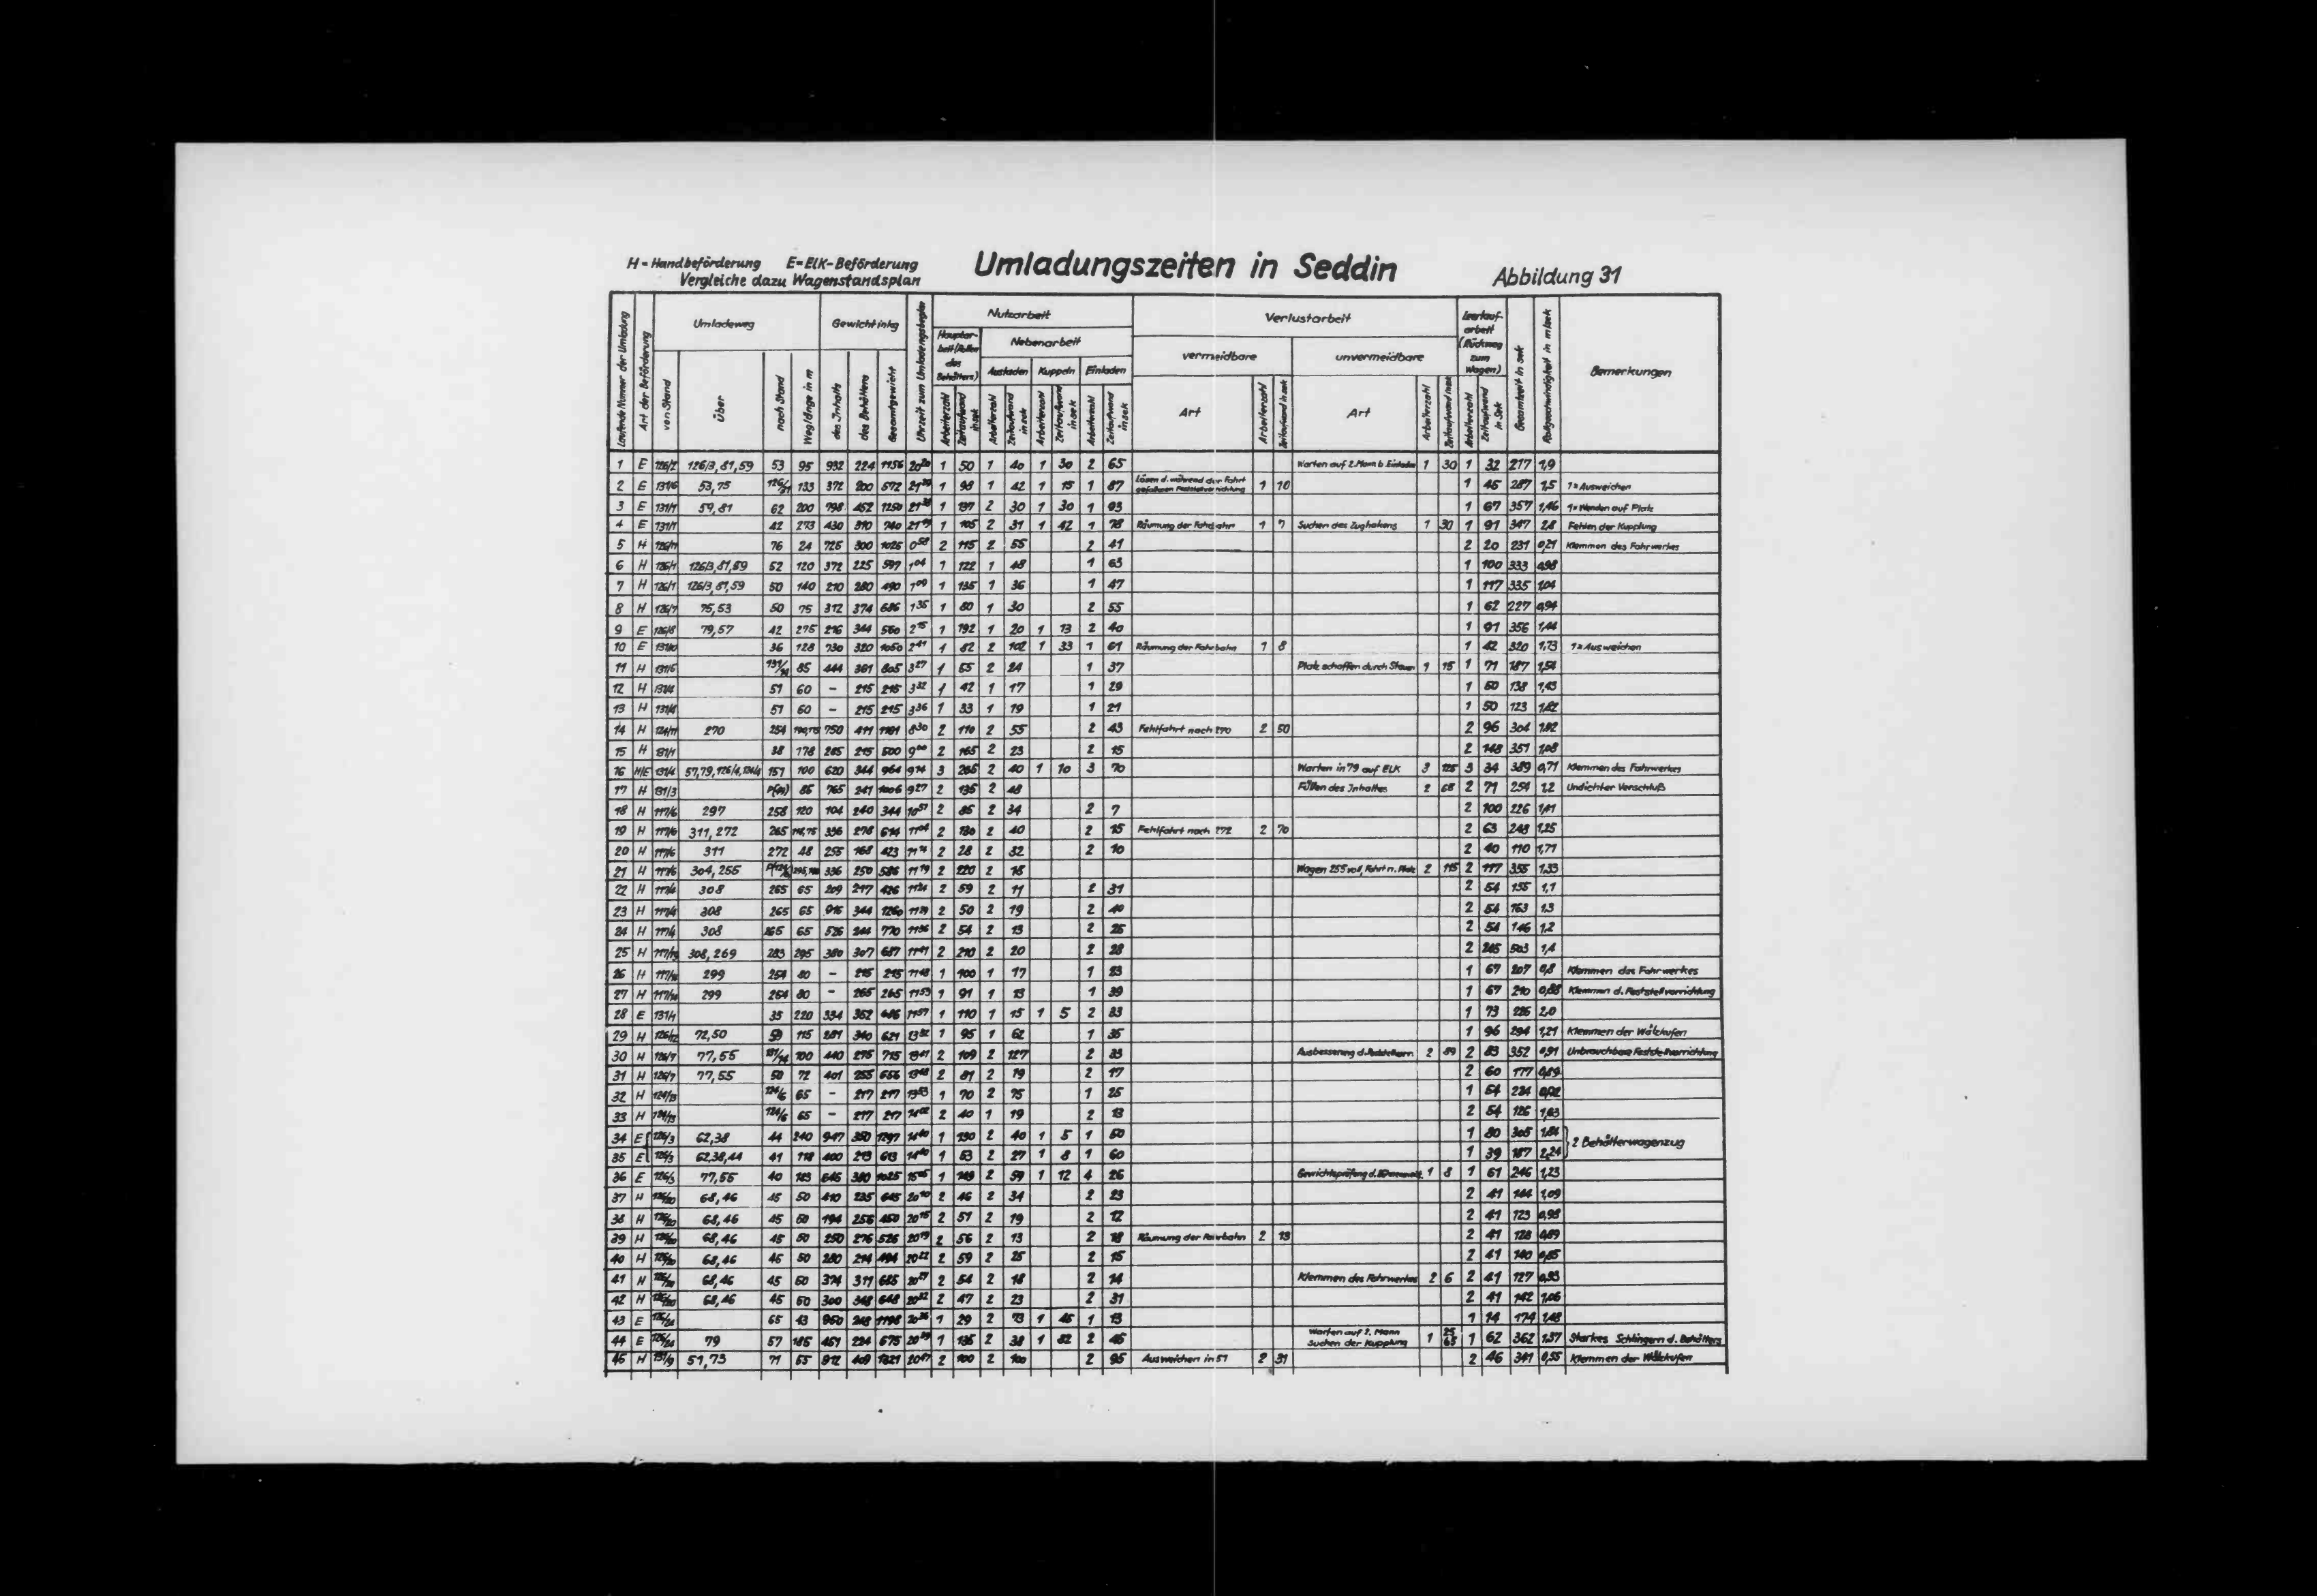 H = Handbeförderung E = ElK-Beförderung
Vergleiche dazu Wagenstandsplan
Umladungszeiten in Seddin
Abbildung 31
Laufende Nummer der Umladung
Art der Beförderung
Umladeweg
von Stand
Über
nach Stand
Weglänge in m
Gewicht in kg
des Inhalts
des Behälters
Gesamtgewicht
Uhrzeit zum Umladungsbeginn
Nutzarbeit
Hauptar-
beit (Rollen
des
Behälters)
Nebenarbeit
Ausladen Kuppeln Einladen
Arbeiterzahl
Zeitaufwand in sek
Arbeiterzahl
Zeitaufwand in sek
Arbeiterzahl
Zeitaufwand in sek
Arbeiterzahl
Zeitaufwand in sek
Verlustarbeit
vermeidbare
Art
Arbeiterzahl
Zeitaufwand in sek
unvermeidbare
Art
Arbeiterzahl
Zeitaufwand in sek
Leerlauf-
arbeit
(Rückweg
zum
Wagen)
Arbeiterzahl
Zeitaufwand in Sek
Gesamtzeit in sek
Rollgeschwindigkeit in m/sek
Bemerkungen
1 E 126/2 126/3, 81, 59 53 95 932 224 1156 20²⁰ 1 50 1 40 1 30 2 65 Warten auf 2. Mann b. Einladen 1 30 1 32 217 1,9
2 E 131/6 53, 75 126/21 133 372 200 572 1 98 1 42 1 15 1 87 Lösen d. während der Fahrt gefallenen Feststellvorrichtung 1 10 1 45 287 1,5 1x Ausweichen
3 E 131/1 59, 81 62 200 798 452 1250 1 137 2 30 1 30 1 93 1 67 357 1,46 1x Wenden auf Platz
4 E 131/1 42 293 430 310 740 1 105 2 31 1 42 1 78 Räumung der Fahrbahn 1 7 Suchen des Zughakens 1 30 1 91 347 2,8 Fehlen der Kupplung
5 H 126/11 76 24 725 300 1025 0⁵⁸ 2 115 2 55 2 41 2 20 231 0,21 Klemmen des Fahrwerkes
6 H 126/1 126/3, 81, 59 52 120 372 225 597 1⁰⁴ 1 122 1 48 1 63 1 100 333 0,98
7 H 126/1 126/3, 81, 59 50 140 210 280 490 1⁰⁹ 1 135 1 36 1 47 1 117 335 1,04
8 H 126/7 75, 53 50 75 312 374 686 1³⁵ 1 80 1 30 2 55 1 62 227 0,94
9 E 126/8 79, 57 42 275 216 344 560 2¹⁵ 1 192 1 20 1 13 2 40 1 91 356 1,44
10 E 131/10 36 128 730 320 1050 2⁴¹ 1 82 2 102 1 33 1 61 Räumung der Fahrbahn 1 8 1 42 320 1,73 1x Ausweichen
11 H 131/5 131/14 85 444 361 805 3²⁷ 1 55 2 24 1 37 Platz schaffen durch Stauen 1 15 1 71 187 1,54
12 H 131/4 51 60 - 215 215 3³² 1 42 1 17 1 29 1 50 138 1,43
13 H 131/4 51 60 - 215 215 3³⁶ 1 33 1 19 1 21 1 50 123 1,82
14 H 124/11 270 254 750 411 1161 8³⁰ 2 110 2 55 2 43 Fehlfahrt nach 270 2 50 2 96 304
15 H 131/1 38 178 285 215 500 9⁰⁰ 2 165 2 23 2 15 2 148 351 1,08
16 H/E 131/4 57, 79, 126/4, 124/4 151 100 620 344 964 9¹⁴ 3 265 2 40 1 10 3 70 Warten in 79 auf ELK 3 125 3 34 389 0,71 Klemmen des Fahrwerkes
17 H 131/3 85 765 241 1006 9²⁷ 2 135 2 48 Füllen des Inhaltes 2 68 2 71 254 1,2 Undichter Verschluß
18 H 117/6 297 258 120 104 240 344 10⁵⁷ 2 85 2 34 2 7 2 100 226 1,41
19 H 117/6 311, 272 265 336 278 614 11⁰⁴ 2 130 2 40 2 15 Fehlfahrt nach 272 2 70 2 63 248 1,25
20 H 117/6 311 272 48 255 168 423 2 28 2 32 2 10 2 40 110 1,71
21 H 117/6 304, 255 336 250 586 11¹⁹ 2 220 2 18 Wagen 255 voll, Fahrt n. Platz 2 115 2 117 355 1,33
22 H 117/4 308 265 65 209 217 426 11²⁴ 2 59 2 11 2 31 2 54 155 1,1
23 H 117/4 308 265 65 916 344 1260 11²⁹ 2 50 2 19 2 40 2 54 163 1,3
24 H 117/4 308 265 65 526 244 770 11³⁶ 2 54 2 13 2 25 2 54 146 1,2
25 H 308, 269 283 295 380 307 687 11⁴¹ 2 210 2 20 2 28 2 245 503 1,4
26 H 299 254 80 - 215 215 11⁴⁸ 1 100 1 17 1 23 1 67 207 0,8 Klemmen des Fahrwerkes
27 H 299 254 80 - 265 265 11⁵³ 1 91 1 13 1 39 1 67 210 0,88 Klemmen d. Feststellvorrichtung
28 E 131/1 35 220 334 352 686 11⁵⁷ 1 110 1 15 1 5 2 23 1 73 226 2,0
29 H 126/12 72, 50 59 115 281 340 621 13³² 1 95 1 62 1 35 1 96 294 1,21 Klemmen der Wälzkufen
30 H 126/7 77, 55 131/14 100 440 275 715 13⁴¹ 2 109 2 127 2 33 Ausbesserung d. Feststellvorr. 2 89 2 83 352 0,91 Unbrauchbare Feststellvorrichtung
31 H 126/7 77, 55 50 72 401 255 656 13⁴⁸ 2 81 2 19 2 17 2 60 177 0,89
32 H 124/13 124/6 65 - 217 217 13⁵³ 1 70 2 75 1 25 1 54 224
33 H 124/13 124/6 65 - 217 217 14⁰² 2 40 1 19 2 13 2 54 126 1,63
34 E 126/3 62, 38 44 240 947 350 1297 14⁴⁰ 1 130 2 40 1 5 1 50 1 80 305 1,84
35 E 126/3 62, 38, 44 41 118 400 213 613 14⁴⁰ 1 53 2 27 1 8 1 60 1 39 187 2,24
2 Behälterwagenzug
36 E 126/3 77, 55 40 183 645 380 1025 15⁰⁵ 1 149 2 59 1 12 4 26 1 8 1 61 246 1,23
37 H 126/20 68, 46 45 50 410 235 645 20¹⁰ 2 46 2 34 2 23 2 41 144 1,09
38 H 126/20 68, 46 45 50 194 256 450 20¹⁵ 2 51 2 19 2 12 2 41 123 0,98
39 H 126/20 68, 46 45 50 250 276 526 20¹⁹ 2 56 2 13 2 18 Räumung der Fahrbahn 2 13 2 41 128 0,89
40 H 126/20 68, 46 45 50 280 214 494 20²² 2 59 2 25 2 15 2 41 140 0,85
41 H 126/20 68, 46 45 50 374 311 685 20²⁷ 2 54 2 18 2 14 Klemmen des Fahrwerkes 2 6 2 41 127 0,93
42 H 126/20 68, 46 45 50 300 348 648 20³² 2 47 2 23 2 31 2 41 142 1,06
43 E 126/24 65 43 950 248 1198 20³⁶ 1 29 2 73 1 45 1 13 1 14 174 1,48
44 E 126/24 79 57 185 451 224 675 20³⁹ 1 135 2 38 1 82 2 45 Warten auf 2. Mann Suchen der Kupplung 1 25 65 1 62 362 1,37 Starkes Schlingern d. Behälters
45 H 131/9 51, 73 71 55 912 409 1321 20⁴⁷ 2 100 2 100 2 95 Ausweichen in 51 2 31 2 46 341 0,55 Klemmen der Wälzkufen